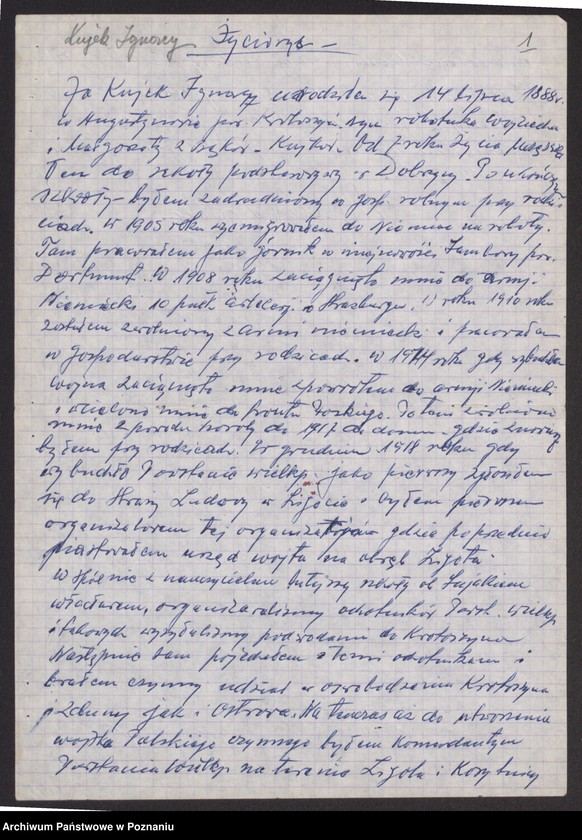 Kujek Ignacy Życiorys — 1
Ja Kujek Ignacy urodziłem się 14 lipca 1888r.
w Augustynowie pow. Krotoszyn. syn robotnika Wojciecha
i Małgorzaty z Kujków. Od 7 roku życia
do szkoły podstawowej w Dobrzycy. Po
szkoły – byłem zatrudniony w gosp. rolnym przy rodzi
cach. w 1905 roku wyemigrowałem do Niemiec na roboty.
Tam pracowałem jako górnik w miejscowości pow.
Dortmunt. W 1908 roku zaciągnięto mnie do armji
Niemiecki 10 pułk artylerji w Strasburgu. W roku 1910
zostałem zwolniony z armi niemiecki i pracowałem
w gospodarstwie przy rodzicach. w 1914 rok gdy wybuchła
wojna zaciągnięto mnie spowrotem do armji Niemiecki
i wcielono mnie do frontu Ruskiego. zwolniono
mnie z powodu do 1917 do domu gdzie znowu
byłem przy rodzicach. W grudniu 1918 roku gdy
wybuchło Powstanie wielkp. jako pierwszy zgłosiłem
się do Straży Ludowy w Ligocie i byłem pierwszym
organizatorem tej organizacji gdzie poprzednio
piastowałem urząd wójta na obręb Ligota
Wspólnie z nauczycielem tutejszy szkoły ob.
Wacławem, organizowaliśmy ochotników Powst. wielkp
i takowych wysyłaliśmy podwodami do Krotoszyna
Następnie sam pojechałem z temi ochotnikami i
brałem czynny udział w oswobodzeniu Krotoszyna
i Zduny jak i Ostrowa. Na tenczas aż do utworzenia
wojska Polskiego czynnego byłem Komendantem
Powstania Wielkp na terenie Ligota i Korytnicy
Archiwum Państwowe w Poznaniu